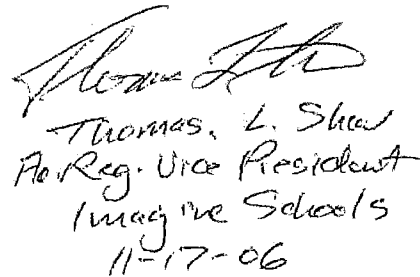 Thomas. L. Shaw
Reg. Vice President
Imagine Schools
11-17-06